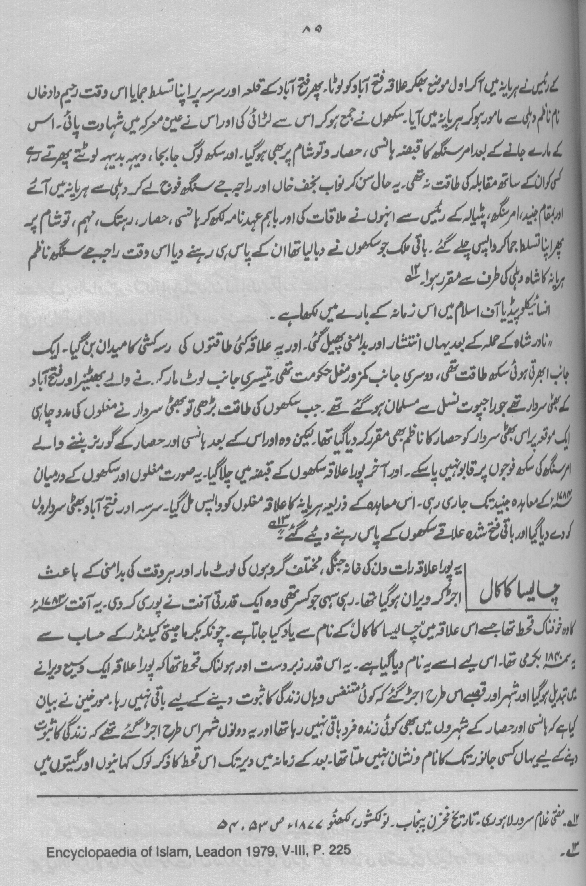 ۸۵
کے رئیس نے ہریانہ میں آکر اول موضع بھکر علاقہ فتح آباد کو لوٹا۔ پھر فتح آباد کے قلعہ اور سرسہ پر اپنا تسلط جمایا اس وقت رحیم داد خاں
نام ناظم دہلی سے مامور ہو کر ہریانہ میں آیا۔ سکھوں نے جمع ہو کر اس سے لڑائی کی اور اس نے عین معرکہ میں شہادت پائی۔ اس
کے مارے جانے کے بعد امر سنگھ کا قبضہ ہانسی، حصار و توشام پر بھی ہوگیا۔ اور سکھ لوگ جا بجا، دیہہ بدیہہ لوٹتے پھرتے رہے
کسی کو ان کے ساتھ مقابلہ کی طاقت نہ تھی۔ یہ حال سن کر نواب نجف خاں اور راجہ جے سنگھ فوج لے کر دہلی سے ہریانہ میں آئے
اور بمقام جنید، امر سنگھ، پٹیالہ کے رئیس سے انہوں نے ملاقات کی اور باہم عہد نامہ لکھ کر ہانسی، حصار، رہتک، مہم، توشام پر
پھر اپنا تسلط جما کر واپس چلے گئے۔ باقی ملک جو سکھوں نے دبا لیا تھا ان کے پاس ہی رہنے دیا اس وقت راجہ جے سنگھ ناظم
ہریانہ کا شاہ دہلی کی طرف سے مقرر ہوا۔ ۱۲؎
انسائیکلوپیڈیا آف اسلام میں اس زمانہ کے بارے میں لکھا ہے۔
"نادر شاہ کے حملہ کے بعد یہاں انتشار اور بدامنی پھیل گئی۔ اور یہ علاقہ کئی طاقتوں کی رسہ کشی کا میدان بن گیا۔ ایک
جانب ابھرتی ہوئی سکھ طاقت تھی، دوسری جانب کمزور مغل حکومت تھی۔ تیسری جانب لوٹ مار کرنے والے بھٹنیر اور فتح آباد
کے بھٹی سردار تھے جو راجپوت نسل سے مسلمان ہوگئے تھے۔ جب سکھوں کی طاقت بڑھی تو بھٹی سردار نے مغلوں کی مدد چاہی
ایک موقعہ پر اس بھٹی سردار کو حصار کا ناظم بھی مقرر کر دیا گیا تھا۔ لیکن وہ اور اس کے بعد ہانسی اور حصار کے گورنر بننے والے
امر سنگھ کی سکھ فوجوں پر قابو نہیں پا سکے۔ اور آخر پورا علاقہ سکھوں کے قبضہ میں چلا گیا۔ یہ صورت مغلوں اور سکھوں کے درمیان
کے معاہدہ جنید تک جاری رہی۔ اس معاہدہ کے ذریعہ ہریانہ کا علاقہ مغلوں کو واپس مل گیا۔ سرسہ اور فتح آباد بھٹی سرداروں
کو دے دیا گیا اور باقی فتح شدہ علاقے سکھوں کے پاس رہنے دیئے گئے" ۱۳؎
چالیسا کا کال
یہ پورا علاقہ رات دن کی خانہ جنگی، مختلف گروہوں کی لوٹ مار اور ہر وقت کی بدامنی کے باعث
اجڑ کر ویران ہوگیا تھا۔ رہی سہی جو کسر تھی وہ ایک قدرتی آفت نے پوری کر دی۔ یہ آفت ۱۷۸۳ء
کا وہ خوفناک قحط تھا جسے اس علاقہ میں "چالیسا کا کال" کے نام سے یاد کیا جاتا ہے۔ چونکہ بکرماجیتی کیلنڈر کے حساب سے
یہ سمہ ۱۸۴۰ بکرمی تھا۔ اس لیے اسے یہ نام دیا گیا ہے۔ یہ اس قدر زبردست اور ہولناک قحط تھا کہ پورا علاقہ ایک وسیع ویرانے
میں تبدیل ہوگیا اور شہر اور قصبے اس طرح اجڑ گئے کہ کوئی متنفس وہاں زندگی کا ثبوت دینے کے لیے باقی نہیں رہا۔ مورخین نے بیان
کیا ہے کہ ہانسی اور حصار کے شہروں میں بھی کوئی زندہ فرد باقی نہیں رہا تھا اور یہ دونوں شہر اس طرح اجڑ گئے تھے کہ زندگی کا ثبوت
دینے کے لیے یہاں کسی جانور تک کا نام و نشان نہیں ملتا تھا۔ بعد کے زمانہ میں دیر تک اس قحط کا ذکر لوک کہانیوں اور گیتوں میں
۱۲؎ مفتی غلام سرور لاہوری۔ تاریخ مخزن پنجاب۔ نولکشور، لکھنؤ ۱۸۷۷ء ص ۵۳، ۵۴
۱۳؎ Encyclopaedia of Islam, Leadon 1979, V-III, P. 225